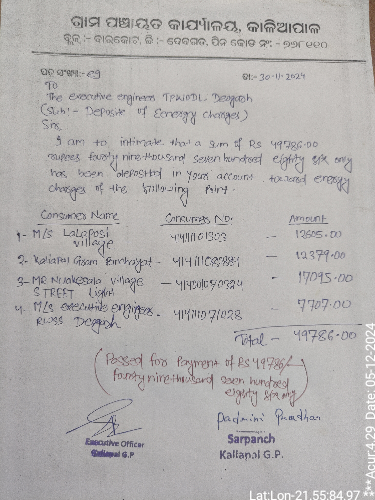 ଗ୍ରାମ ପଞ୍ଚାୟତ କାର୍ଯ୍ୟାଳୟ, କାଳିଆପାଳ
ବ୍ଲକ୍ :- ବାରକୋଟ, ଜି :- ଦେବଗଡ, ପିନ କୋଡ ନଂ :- ୭୬୮୧୧୦
ପତ୍ର ସଂଖ୍ୟା:-
ତା:- 30-11-2024
To
The executive engineer TPWODL Deogarh
(Sub:- Deposite of Eenergy charges)
Sir,
I am to intimate that a sum of RS 49786.00
rupees fourty nine thousand seven hundred eighty six only
has been deposited in your account toward energy
charges of the following Point.
Consumer Name Consumers No. Amount
1- M/S Lalaposi - 12605.00
village
2- Kaliapal Gram Panchayat - - 12379.00
3- MR Nuakesala village - - 17095.00
STREET Light
4- M/s executive engineer - - 7707.00
RWSS Deogarh
Total - 49786.00
(Passed for Payment of RS 49786/-
fourty nine thousand seven hundred
eighty six only)
Executive Officer
Kaliapal G.P.
Padmini Pradhan
Sarpanch
Kaliapal G.P.
Lat:Lon-21.55:84.97
***Acur:4.29 Date:05-12-2024